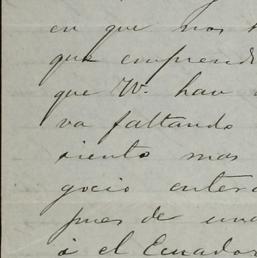 en que nos
que comprendi
que W. hav
va faltando
siento mas
gocio enter
pues de un
ó el Ecuador